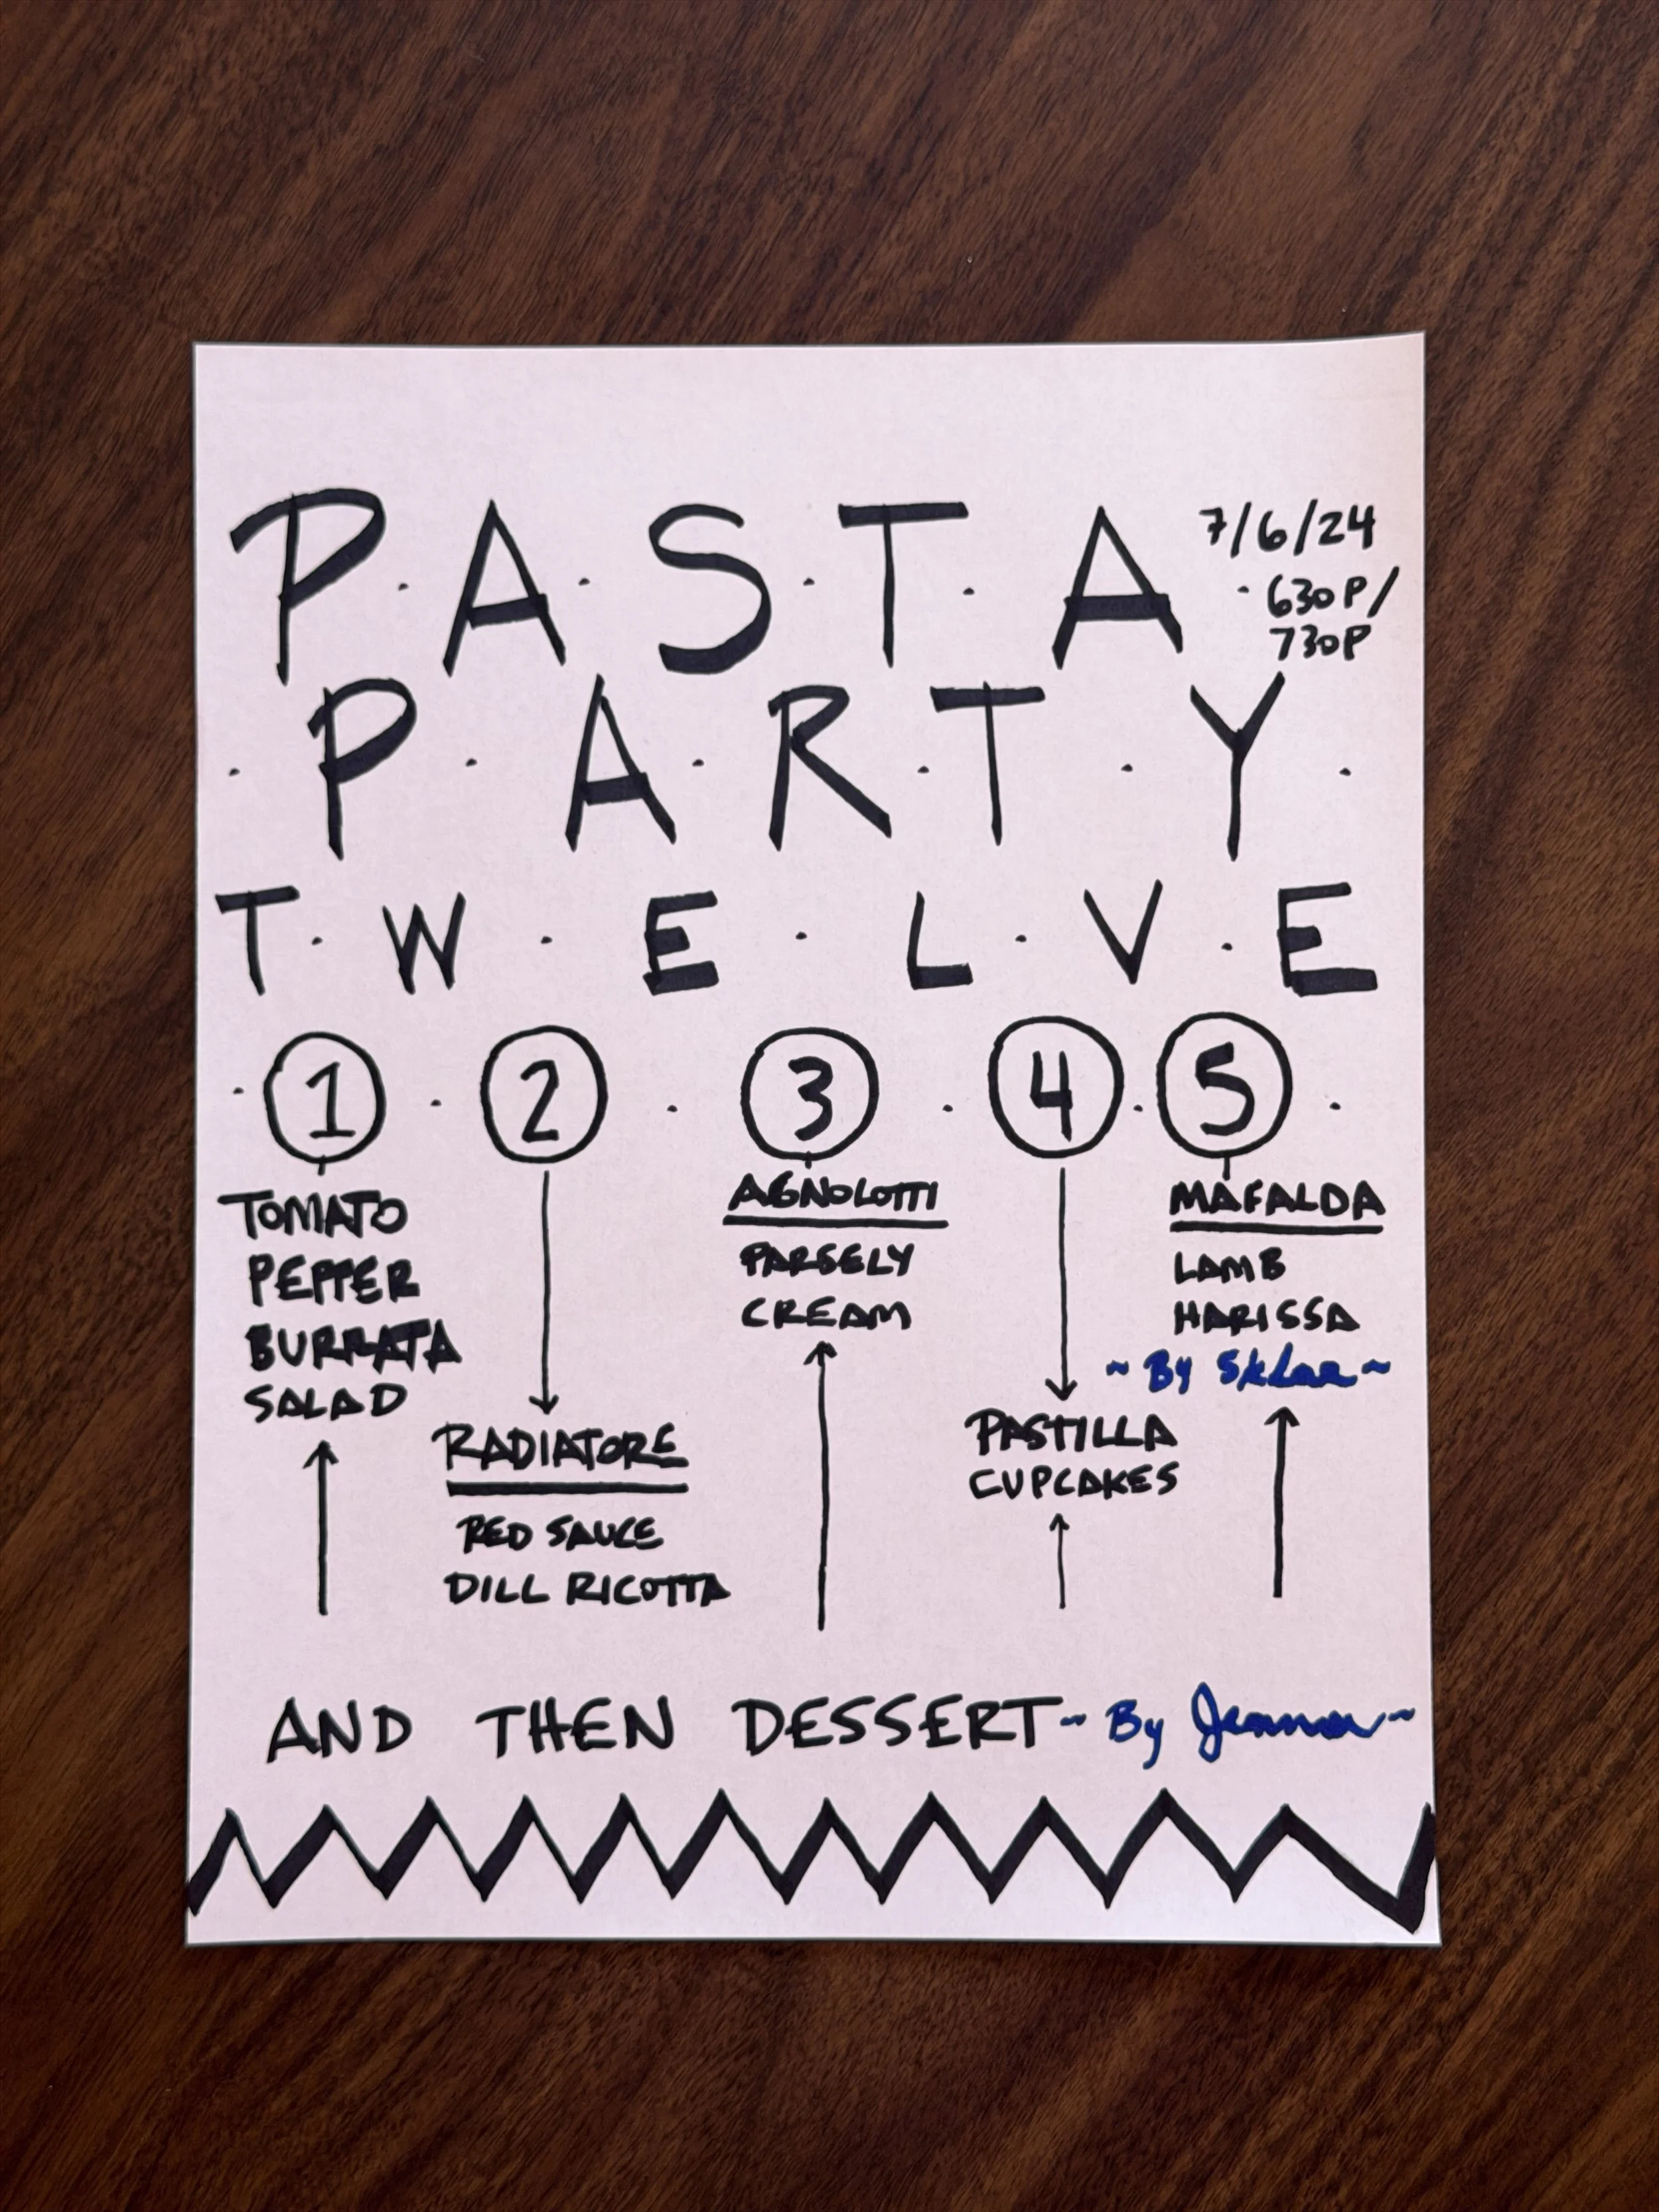 PASTA
7/6/24
630P/
730P
PARTY
TWELVE
1 2 3 4 5
TOMATO
PEPPER
BURRATA
SALAD
RADIATORE
RED SAUCE
DILL RICOTTA
AGNOLOTTI
PARSELY
CREAM
PASTILLA
CUPCAKES
MAFALDA
LAMB
HARISSA
~ By Sklar ~
AND THEN DESSERT ~ By Jenna ~